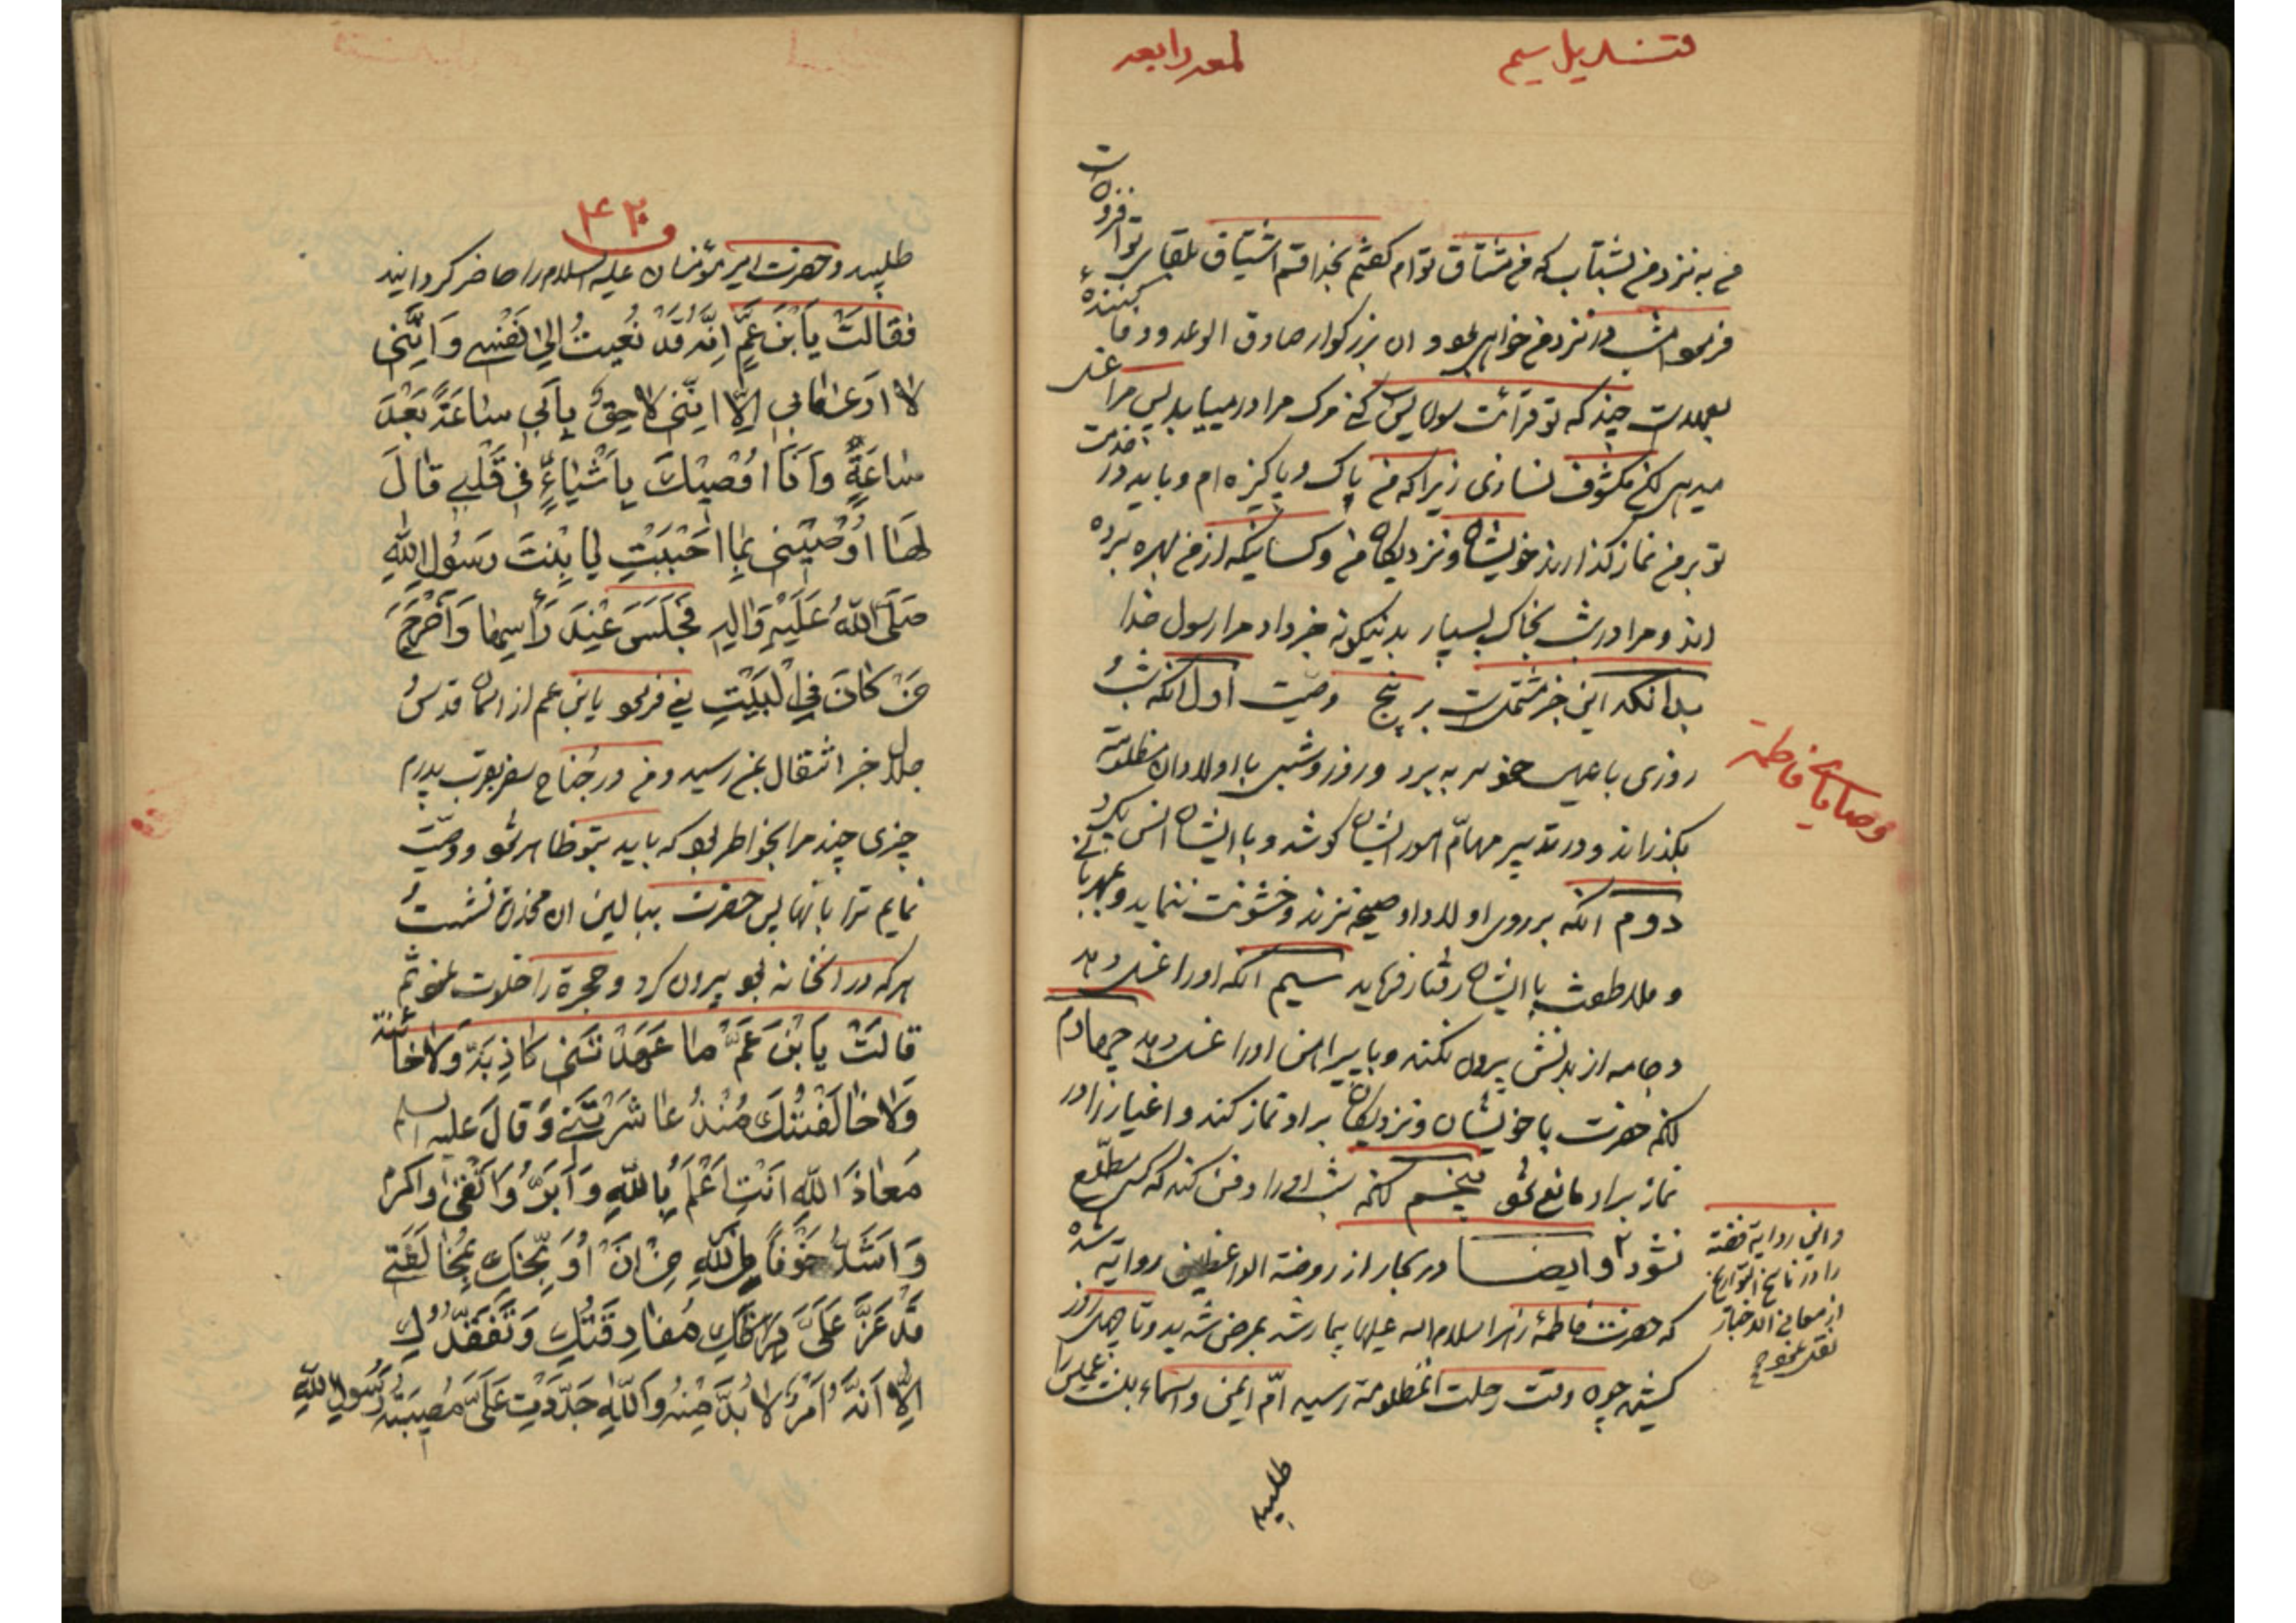 قندیل سیم
لمعه رابعه
من به نزد من بشتاب که من مشتاق توام گفتم بخدا قسم اشتیاق بلقای تو افزون است
فرمود امشب در نزد من خواهی بود و ان بزرگوار صادق الوعد و وفا کننده
بعهدست چونکه تو قرائت سوره یس کنی مرک مرا درمییابد پس مرا غسل
میدهی لکن مکشوف نسازی زیرا که من پاک و پاکیزه ام و باید در خدمت
تو بر من نماز گذارند خویشان و نزدیکان من و کسانیکه از من بهره برده
اند و مرا در شب بخاک بسپار بدینگونه خبر داد مرا رسول خدا
بدانکه این خبر مشتملست بر پنج وصیت اول انکه شب
روزی با عیال خود بسر برد و روز و شبی با اولاد ان مظلومه
بگذراند و در تدبیر مهام امور ایشان کوشد و با ایشان انس گیرد
دوم انکه بر روی اولاد او صیحه نزند و خشونت ننماید و بمهربانی
و ملاطفت با ایشان رفتار فرماید سیم انکه او را غسل دهد
و جامه از بدنش بیرون نکند و با پیراهن او را غسل دهد چهارم
انکه حضرت با خویشان و نزدیکان بر او نماز کند و اغیار را در
نماز بر او مانع شود پنجم انکه شب او را دفن کند که کسی مطلع
نشود و ایضا در بحار از روضة الواعظین روایة شده
که حضرت فاطمه زهرا سلام الله علیها بیمار شد بمرض شدید و تا چهل روز
کشید چون وقت رحلت انمظلومة رسید ام ایمن و اسماء بنت عمیس را
طلبید
وصایای فاطمه
و این روایة فضه
را در ناسخ التواریخ
از معانی الاخبار
نقل نموده
۴۲
طلبید و حضرت امیر مؤمنان علیه السلام را حاضر کردانید
فَقالَتْ یَابْنَ عَمِّ اِنَّهُ قَدْ نُعِیَتْ اِلَیَّ نَفْسی وَ اِنَّنی
لا اَریٰ مابی اِلّا اِنَّنی لاحِقٌ بِاَبی ساعَةً بَعْدَ
ساعَةٍ وَ اَنَا اُوصیکَ بِاَشْیاءٍ فی قَلْبی قالَ
لَها اَوْصینی بِما اَحْبَبْتِ یا بِنْتَ رَسُولِ اللهِ
صَلَّی اللهُ عَلَیْهِ وَ الِهِ فَجَلَسَ عِنْدَ رَأْسِها وَ اَخْرَجَ
مَنْ کانَ فِی الْبَیْتِ یعنی فرمود یابن عم از اسمان قدس
جلال خبر انتقال بمن رسید و من در جناح سفر بقرب پدرم
چیزی چند مرا بخاطر بود که باید بتو ظاهر نمود و وصیت
نمایم ترا بانها پس حضرت ببالین ان مخدرة نشست
هر که در انخانه بود بیرون کرد و حجرة را خلوت نمود ثم
قالَتْ یَابْنَ عَمِّ ما عَهِدْتَنی کاذِبَةً وَلا خائِنَةً
وَلا خالَفْتُکَ مُنْذُ عاشَرْتَنی وَ قالَ علیه السلام
مَعاذَ اللهِ اَنْتِ اَعْلَمُ بِاللهِ وَ اَبَرُّ وَ اَتْقیٰ وَ اَکْرَمُ
وَ اَشَدُّ خَوْفاً مِنَ اللهِ مِنْ اَنْ اُوَبِّخَکِ بِمُخالَفَتی
قَدْ عَزَّ عَلَیَّ مُفارَقَتُکِ وَ تَفَقُّدُکِ
اِلّا اَنَّهُ اَمْرٌ لا بُدَّ مِنْهُ وَ اللهِ جَدَّدْتِ عَلَیَّ مُصیبَةَ رَسُولِ اللهِ